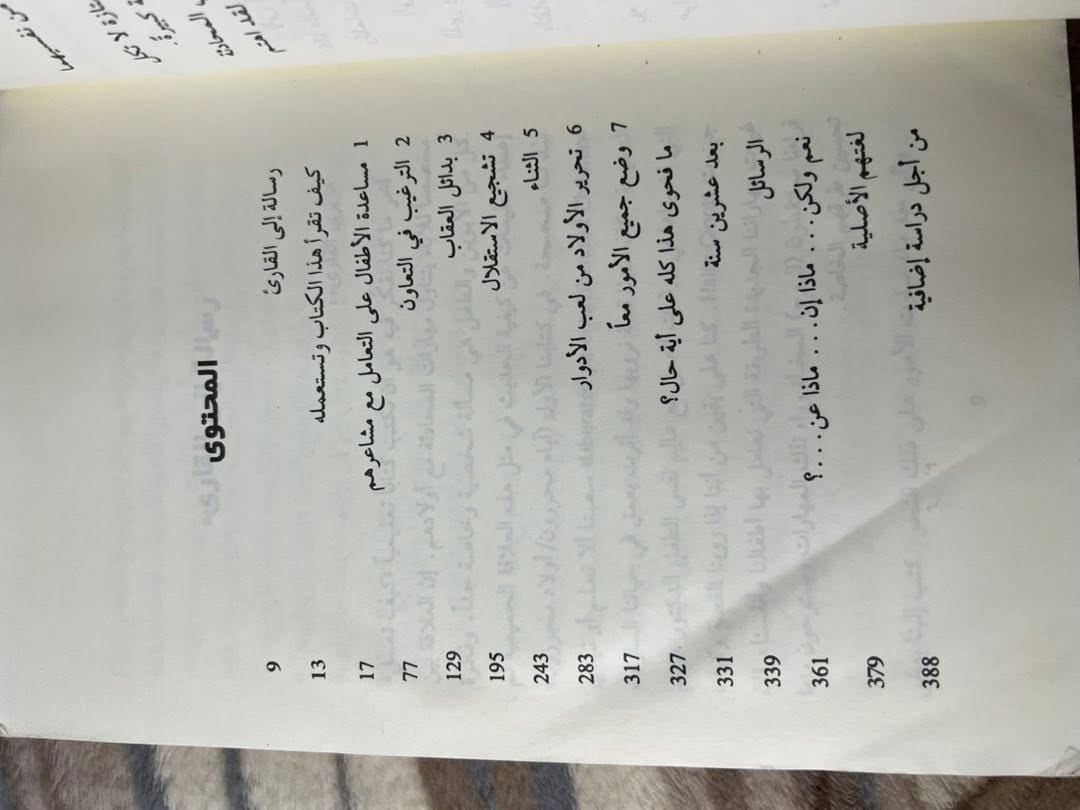 المحتوى
رسالة إلى القارئ 9
كيف تقرأ هذا الكتاب وتستعمله 13
1 مساعدة الأطفال على التعامل مع مشاعرهم 17
2 الترغيب في التعاون 77
3 بدائل العقاب 129
4 تشجيع الاستقلال 195
5 الثناء 243
6 تحرير الأولاد من لعب الأدوار 283
7 وضع جميع الأمور معاً 317
ما فحوى هذا كله على أية حال؟ 327
بعد عشرين سنة 331
الرسائل 339
نعم ولكن... ماذا إن... ماذا عن...؟ 361
لغتهم الأصلية 379
من أجل دراسة إضافية 388